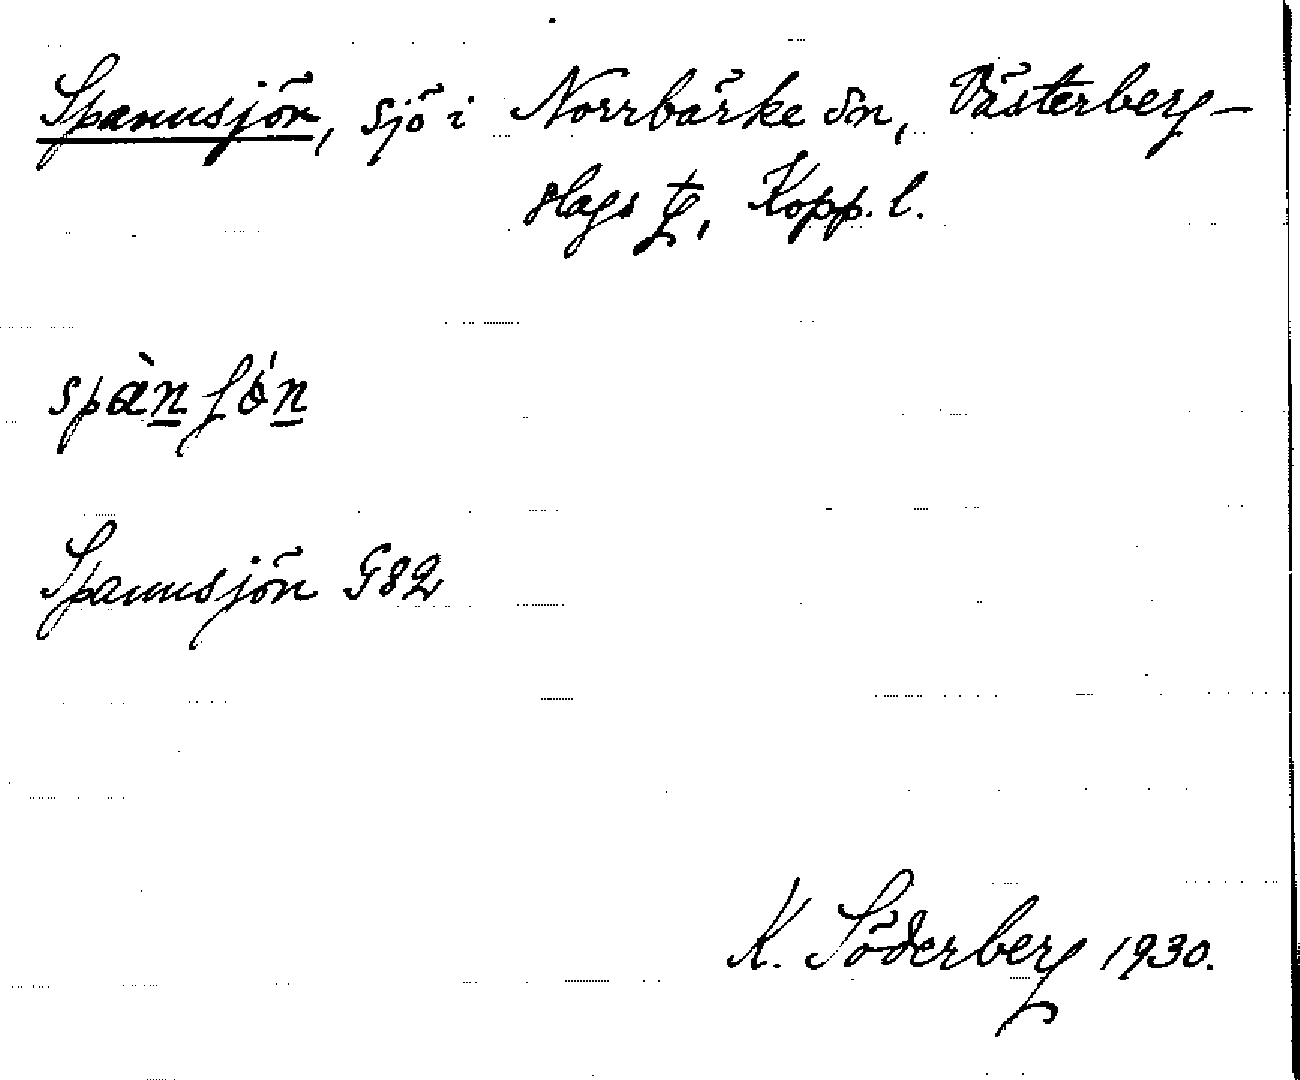 Spannsjön, sjö i Norrbärke sn, Västerberg-
slags tg, Kopp. l.
spàn ʃö́n
Spannsjön G82
K. Söderberg 1930.